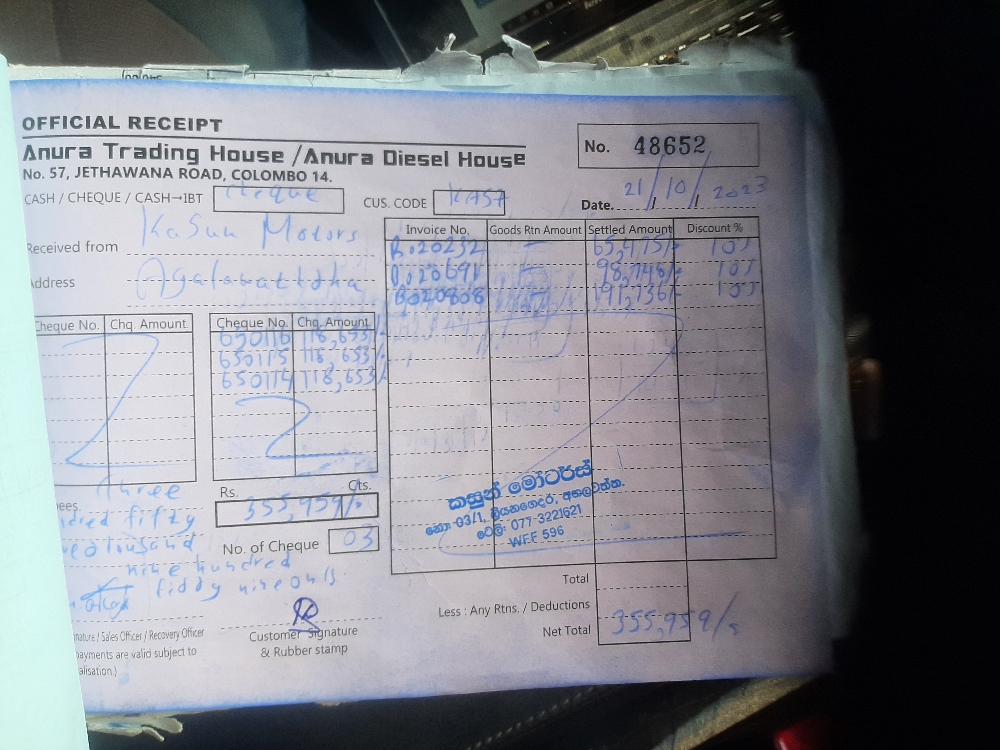 OFFICIAL RECEIPT
Anura Trading House /Anura Diesel House
No. 57, JETHAWANA ROAD, COLOMBO 14.
No. 48652
CASH / CHEQUE / CASH→IBT cheque CUS. CODE KAS7 Date. 21/10/2023
Received from Kasun Motors
Address Agalawaththa
Invoice No. Goods Rtn Amount Settled Amount Discount %
B020232 - 65,475/- 10%
B020691 - 98,748/- 10%
B020808 - 191,736/- 10%
Cheque No. Chq. Amount Cheque No. Chq. Amount
650116 118,653/-
650115 118,653/-
650114 118,653/-
Rs. Cts.
355,959/-
No. of Cheque 03
Three
fifty
nine hundred
fiddy nine only
කසුන් මෝටර්ස්
නො 03/1, ලියනගෙදර, අගලවත්ත.
ටෙලි: 077-3221621
WFF 596
Total
Less : Any Rtns. / Deductions
Net Total 355,959/-
Customer Signature
& Rubber stamp
/ Sales Officer / Recovery Officer
payments are valid subject to